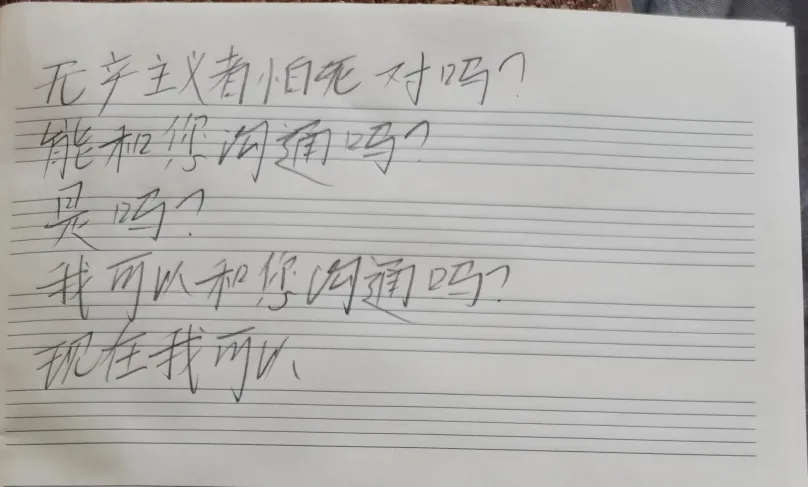 无产主义者怕死对吗?
能和您沟通吗?
是吗?
我可以和您沟通吗?
现在我可以